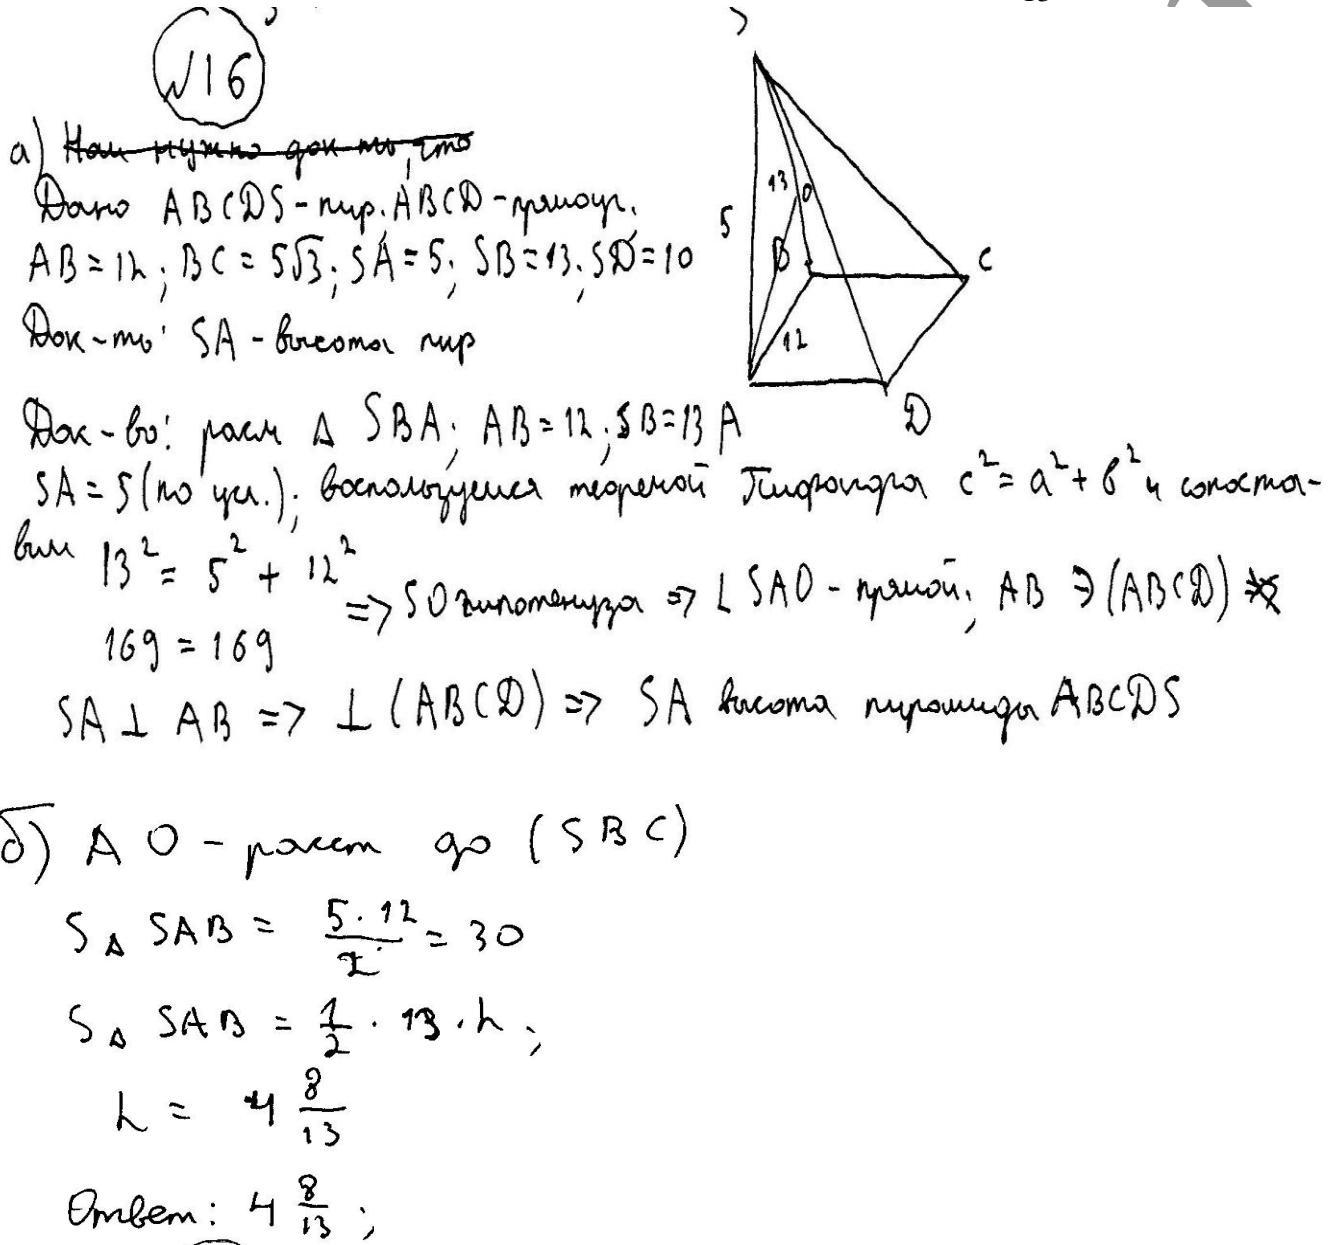 №16
а) Нам нужно док-ть, что
Дано ABCDS-пир. ABCD-прямоуг.
AB=12; BC=5√3; SA=5; SB=13; SD=10
Док-ть: SA-высота пир
Док-во: расм Δ SBA; AB=12; SB=13
SA=5(по усл.); воспользуемся теоремой Пифагора c²=a²+b² и сопоста-
вим 13²=5²+12²
169=169
=> SO гипотенуза => ∠SAO-прямой; AB ∋(ABCD)
SA⊥AB => ⊥(ABCD) => SA высота пирамиды ABCDS
5
13
O
B
C
12
A
D
б) AO-расст до (SBC)
S Δ SAB = 5·12/2 = 30
S Δ SAB = 1/2 · 13 · h;
h = 4 8/13
Ответ: 4 8/13;